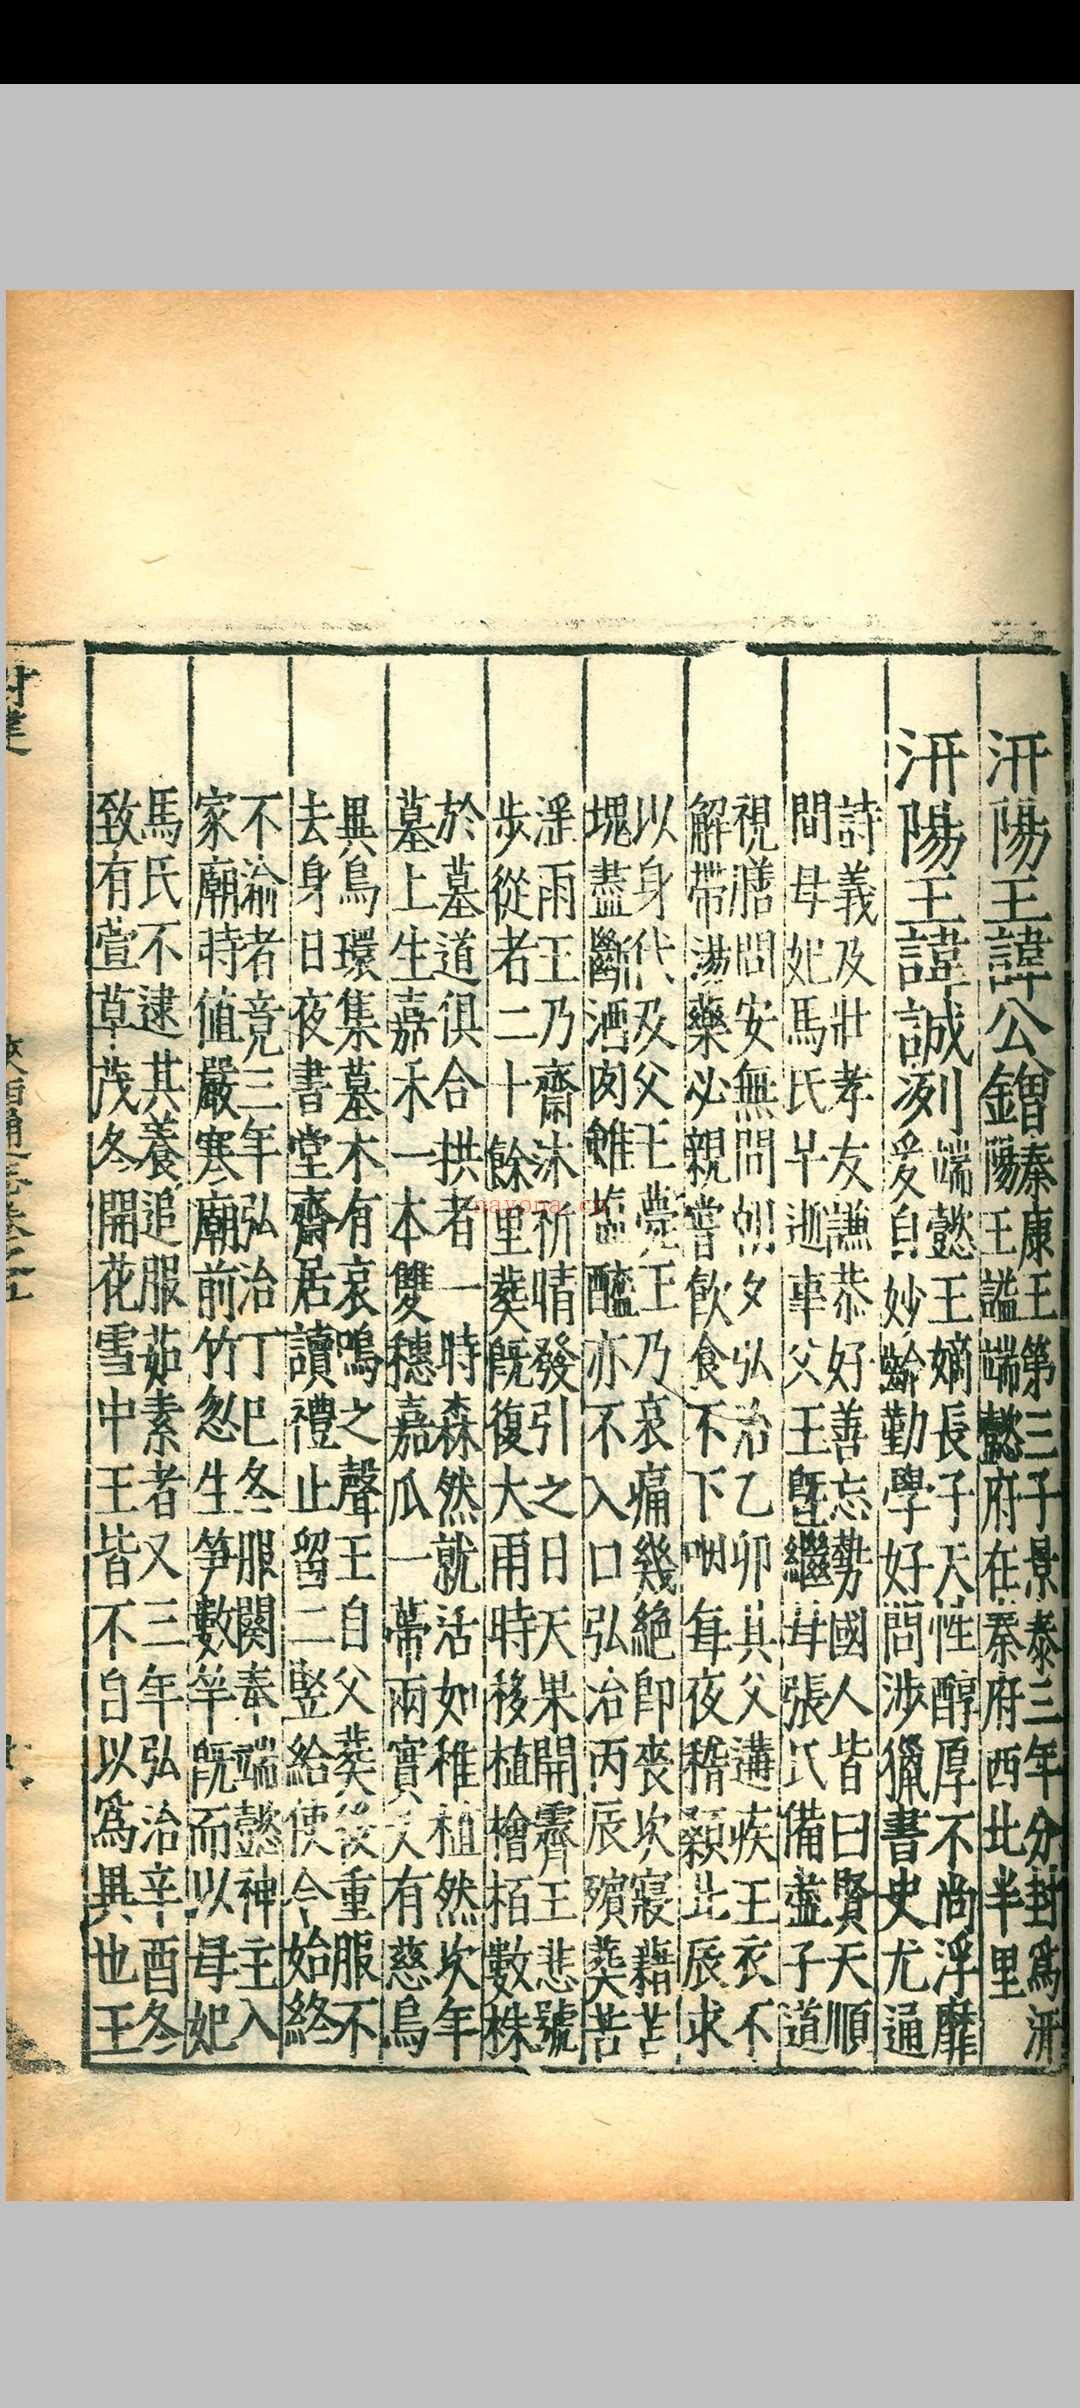 汧陽王諱公鏳秦康王第三子景泰三年分封爲汧
陽王謚端懿府在秦府西北半里
汧陽王諱誠洌端懿王嫡長子天性醇厚不尚浮靡
爰自妙齡勤學好問涉獵書史尤通
詩義及壯孝友謙恭好善忘勢國人皆曰賢天順
間母妃馬氏早逝事父王曁繼母張氏備盡子道
視膳問安無間朝夕弘治乙卯其父遘疾王衣不
解帶湯藥必親嘗飲食不下咽每夜稽顙北辰求
以身代及父王薨王乃哀痛幾絕卽喪次寢藉苫
塊盡斷酒肉雖鹽醯亦不入口弘治丙辰殯葬苦
滛雨王乃齋沐祈晴發引之日天果開霽王悲號
步從者二十餘里葬旣復大雨時移植檜栢數株
於墓道俱合拱者一時森然就活如稚植然次年
墓上生嘉禾一本雙穗嘉瓜一蒂兩實又有慈烏
異鳥環集墓木有哀鳴之聲王自父葬後重服不
去身日夜書堂齋居讀禮止留二竪給使令始終
不渝者竟三年弘治丁巳冬服闋奉端懿神主入
家廟時值嚴寒廟前竹忽生笋數竿旣而以母妃
馬氏不逮其養追服茹素者又三年弘治辛酉冬
致有萱草茂冬開花雪中王皆不自以爲異也王
nayona.cn